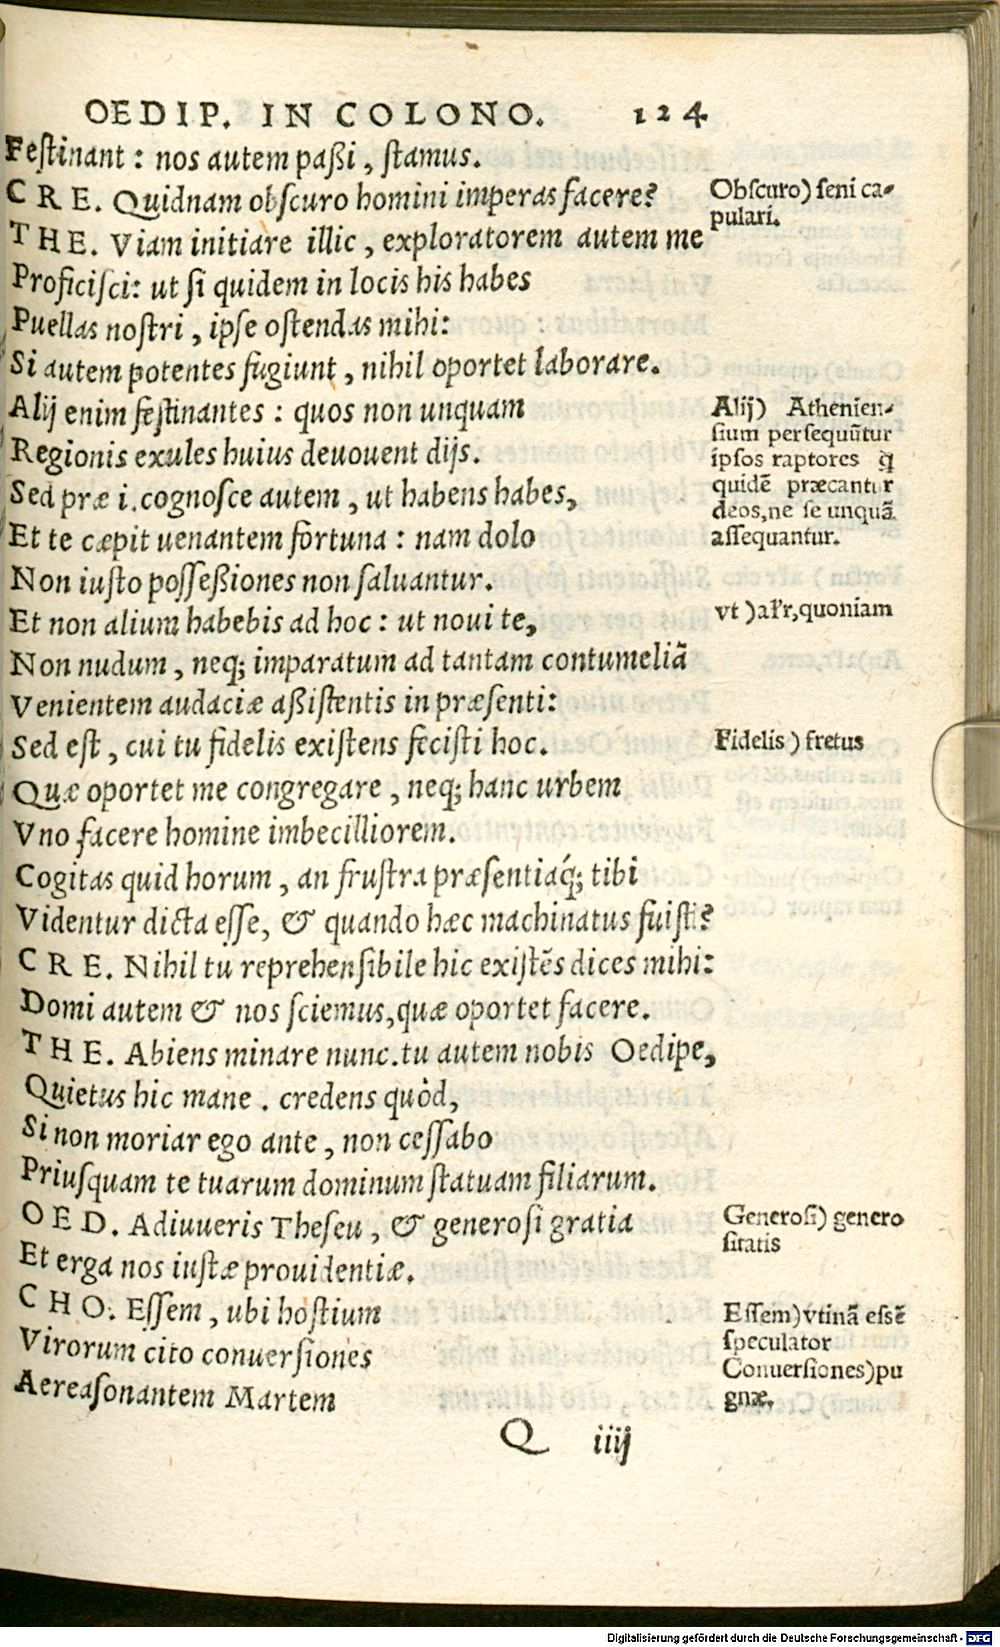 OEDIP. IN COLONO. 124
Feſtinant : nos autem paßi , ſtamus.
CRE. Quidnam obſcuro homini imperas facere?
Obſcuro) ſeni ca-
pulari.
THE. Viam initiare illic , exploratorem autem me
Proficiſci: ut ſi quidem in locis his habes
Puellas noſtri , ipſe oſtendas mihi:
Si autem potentes fugiunt , nihil oportet laborare.
Alij enim feſtinantes : quos non unquam
Regionis exules huius deuouent dijs.
Alij) Athenien-
ſium perſequũtur
ipſos raptores q̃
quidẽ præcantur
deos,ne ſe unquã
aſſequantur.
Sed præ i.cognoſce autem , ut habens habes,
Et te cæpit uenantem fortuna : nam dolo
Non iuſto poſſeßiones non ſaluantur.
Et non alium habebis ad hoc : ut noui te,
vt )al'r,quoniam
Non nudum , neq; imparatum ad tantam contumeliã
Venientem audaciæ aßiſtentis in præſenti:
Sed eſt , cui tu fidelis exiſtens feciſti hoc.
Fidelis ) fretus
Quæ oportet me congregare , neq; hanc urbem
Vno facere homine imbecilliorem.
Cogitas quid horum , an fruſtra præſentiaq́; tibi
Videntur dicta eſſe, & quando hæc machinatus fuiſti?
CRE. Nihil tu reprehenſibile hic exiſtẽs dices mihi:
Domi autem & nos ſciemus,quæ oportet facere.
THE. Abiens minare nunc.tu autem nobis Oedipe,
Quietus hic mane . credens quòd,
Si non moriar ego ante , non ceſſabo
Priuſquam te tuarum dominum ſtatuam filiarum.
OED. Adiuueris Theſeu , & generoſi gratia
Generoſi) genero
ſitatis
Et erga nos iuſtæ prouidentiæ.
CHO. Eſſem , ubi hoſtium
Virorum cito conuerſiones
Aereaſonantem Martem
Eſſem)vtinã eſsẽ
ſpeculator
Conuerſiones)pu
gnæ.
Q iiij
Digitalisierung gefördert durch die Deutsche Forschungsgemeinschaft - DFG